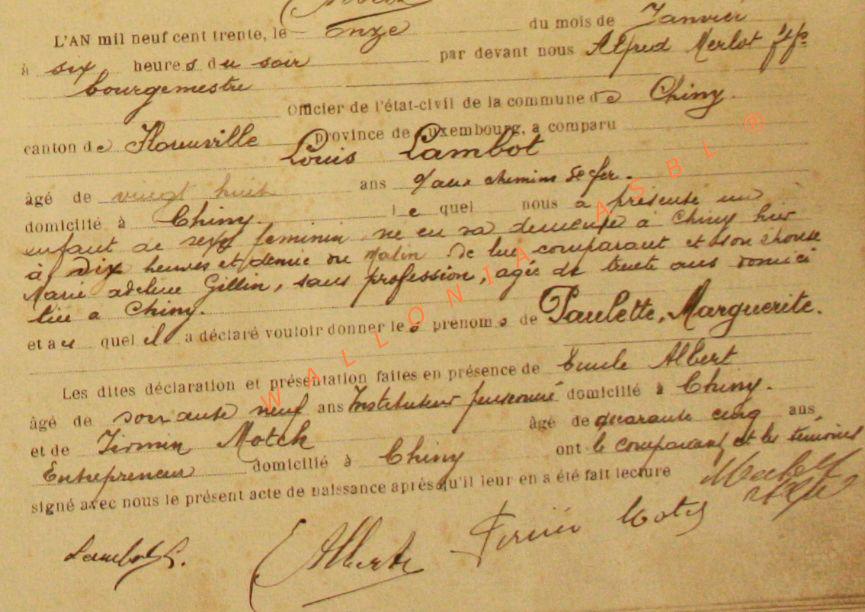 L'AN mil neuf cent trente, le onze du mois de Janvier
à six heures du soir par devant nous Alfred Merlot ff
bourgmestre
Officier de l'état-civil de la commune de Chiny.
canton de Florenville province de Luxembourg, a comparu
Louis Lambot
âgé de vingt huit ans aux chemins de fer.
domicilié à Chiny. le quel nous a présenté un
enfant de sexe féminin né en sa demeure à Chiny hier
à dix heures et demie du matin de lui comparant et son épouse
Marie Adeline Gillin, sans profession, agée de trente ans domici
liée à Chiny.
et au quel il a déclaré vouloir donner les prénoms de Paulette, Marguerite.
Les dites déclaration et présentation faites en présence de Emile Albert
âgé de soixante neuf ans Instituteur pensionné domicilié à Chiny.
et de Firmin Motch âgé de quarante cinq ans
Entrepreneur domicilié à Chiny ont le comparant et les témoins
signé avec nous le présent acte de naissance après qu'il leur en a été fait lecture
Lambot L. Albert Firmin Motch
WALLONIA ASBL ®